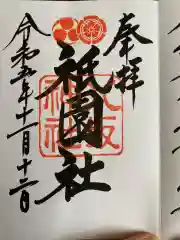 奉拝
祇園社
八坂神社
令和五年十一月十二日